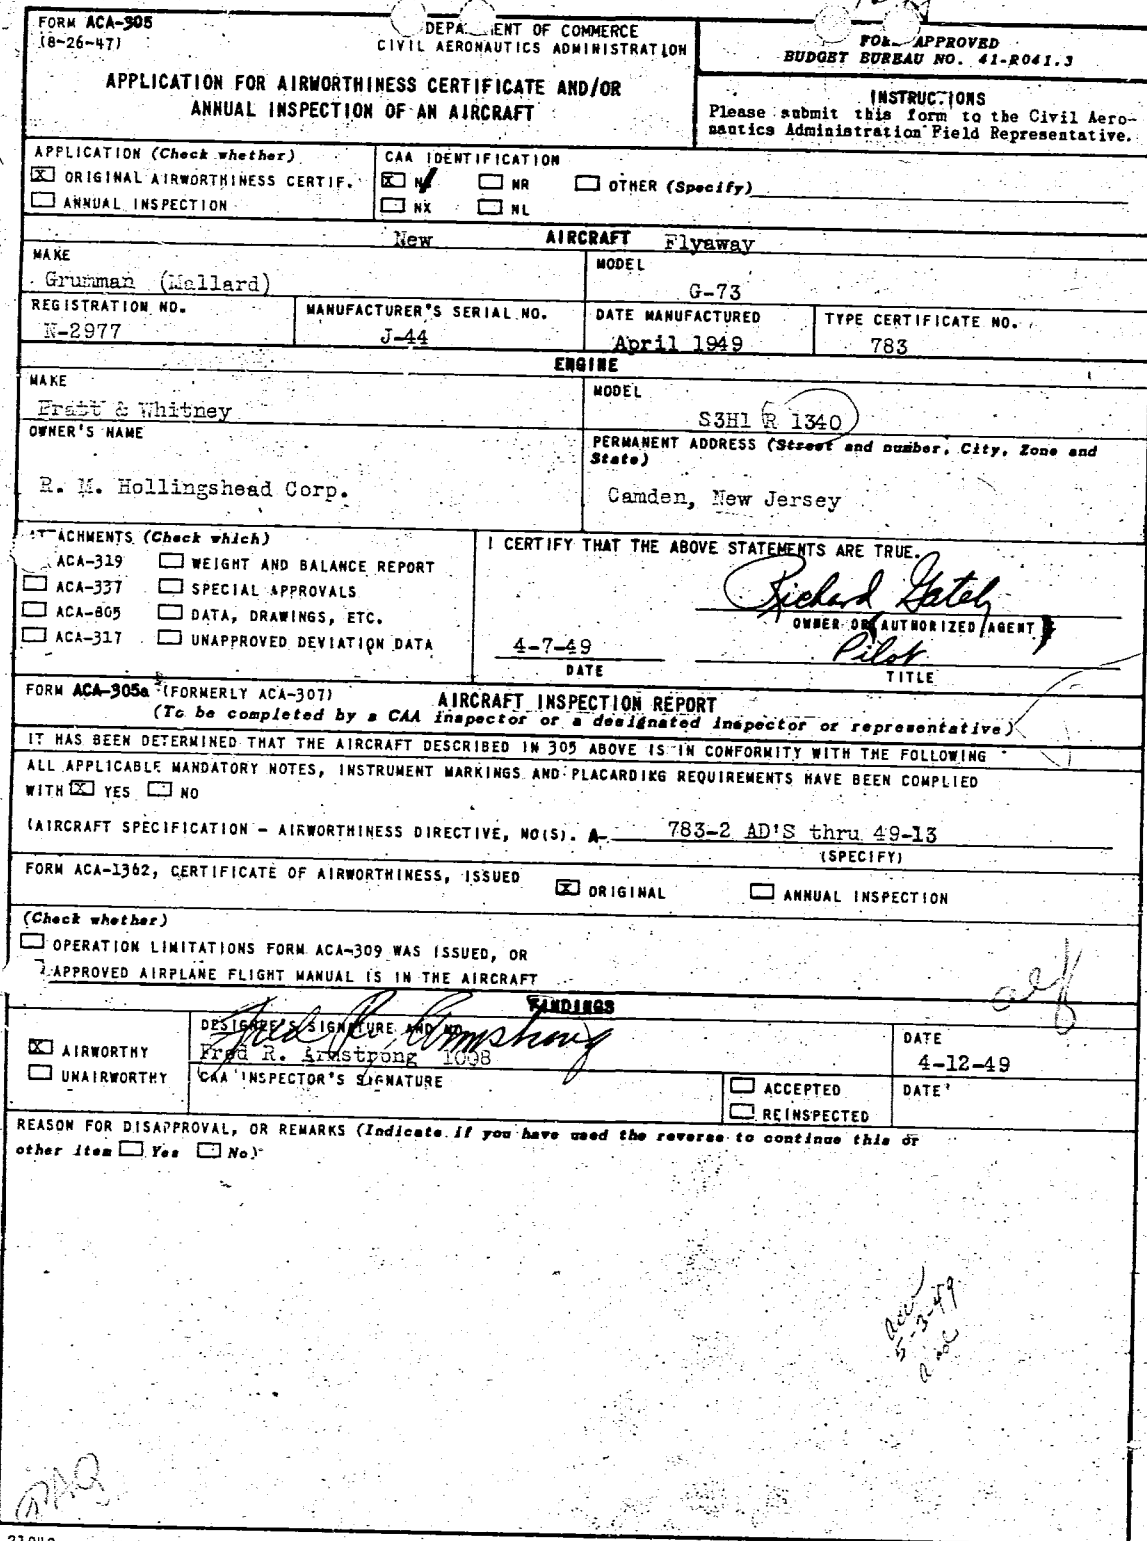 FORM ACA-305
(8-26-47)
DEPA ENT OF COMMERCE
CIVIL AERONAUTICS ADMINISTRATION
APPLICATION FOR AIRWORTHINESS CERTIFICATE AND/OR
ANNUAL INSPECTION OF AN AIRCRAFT
FORM APPROVED
BUDGET BUREAU NO. 41-R041.3
INSTRUCTIONS
Please submit this form to the Civil Aero-
nautics Administration Field Representative.
APPLICATION (Check whether)
X ORIGINAL AIRWORTHINESS CERTIF.
ANNUAL INSPECTION
CAA IDENTIFICATION
X N NR OTHER (Specify)
NX NL
New AIRCRAFT Flyaway
MAKE
Grumman (Mallard)
MODEL
G-73
REGISTRATION NO.
N-2977
MANUFACTURER'S SERIAL NO.
J-44
DATE MANUFACTURED
April 1949
TYPE CERTIFICATE NO.
783
ENGINE
MAKE
Pratt & Whitney
MODEL
S3H1 R 1340
OWNER'S NAME
R. M. Hollingshead Corp.
PERMANENT ADDRESS (Street and number, City, Zone and
State)
Camden, New Jersey
ACHMENTS (Check which)
ACA-319 WEIGHT AND BALANCE REPORT
ACA-337 SPECIAL APPROVALS
ACA-805 DATA, DRAWINGS, ETC.
ACA-317 UNAPPROVED DEVIATION DATA
I CERTIFY THAT THE ABOVE STATEMENTS ARE TRUE.
Richard Gately
OWNER OR (AUTHORIZED AGENT)
4-7-49
DATE
Pilot
TITLE
FORM ACA-305a (FORMERLY ACA-307)
AIRCRAFT INSPECTION REPORT
(To be completed by a CAA inspector or a designated inspector or representative)
IT HAS BEEN DETERMINED THAT THE AIRCRAFT DESCRIBED IN 305 ABOVE IS IN CONFORMITY WITH THE FOLLOWING
ALL APPLICABLE MANDATORY NOTES, INSTRUMENT MARKINGS AND PLACARDING REQUIREMENTS HAVE BEEN COMPLIED
WITH X YES NO
(AIRCRAFT SPECIFICATION - AIRWORTHINESS DIRECTIVE, NO(S). A- 783-2 AD'S thru 49-13
(SPECIFY)
FORM ACA-1362, CERTIFICATE OF AIRWORTHINESS, ISSUED X ORIGINAL ANNUAL INSPECTION
(Check whether)
OPERATION LIMITATIONS FORM ACA-309 WAS ISSUED, OR
APPROVED AIRPLANE FLIGHT MANUAL IS IN THE AIRCRAFT
FINDINGS
X AIRWORTHY
UNAIRWORTHY
DESIGNEE'S SIGNATURE AND NO.
Fred R. Armstrong
Fred R. Armstrong 1008
DATE
4-12-49
CAA INSPECTOR'S SIGNATURE
ACCEPTED
REINSPECTED
DATE
REASON FOR DISAPPROVAL, OR REMARKS (Indicate if you have used the reverse to continue this or
other item Yes No)
5-3-49